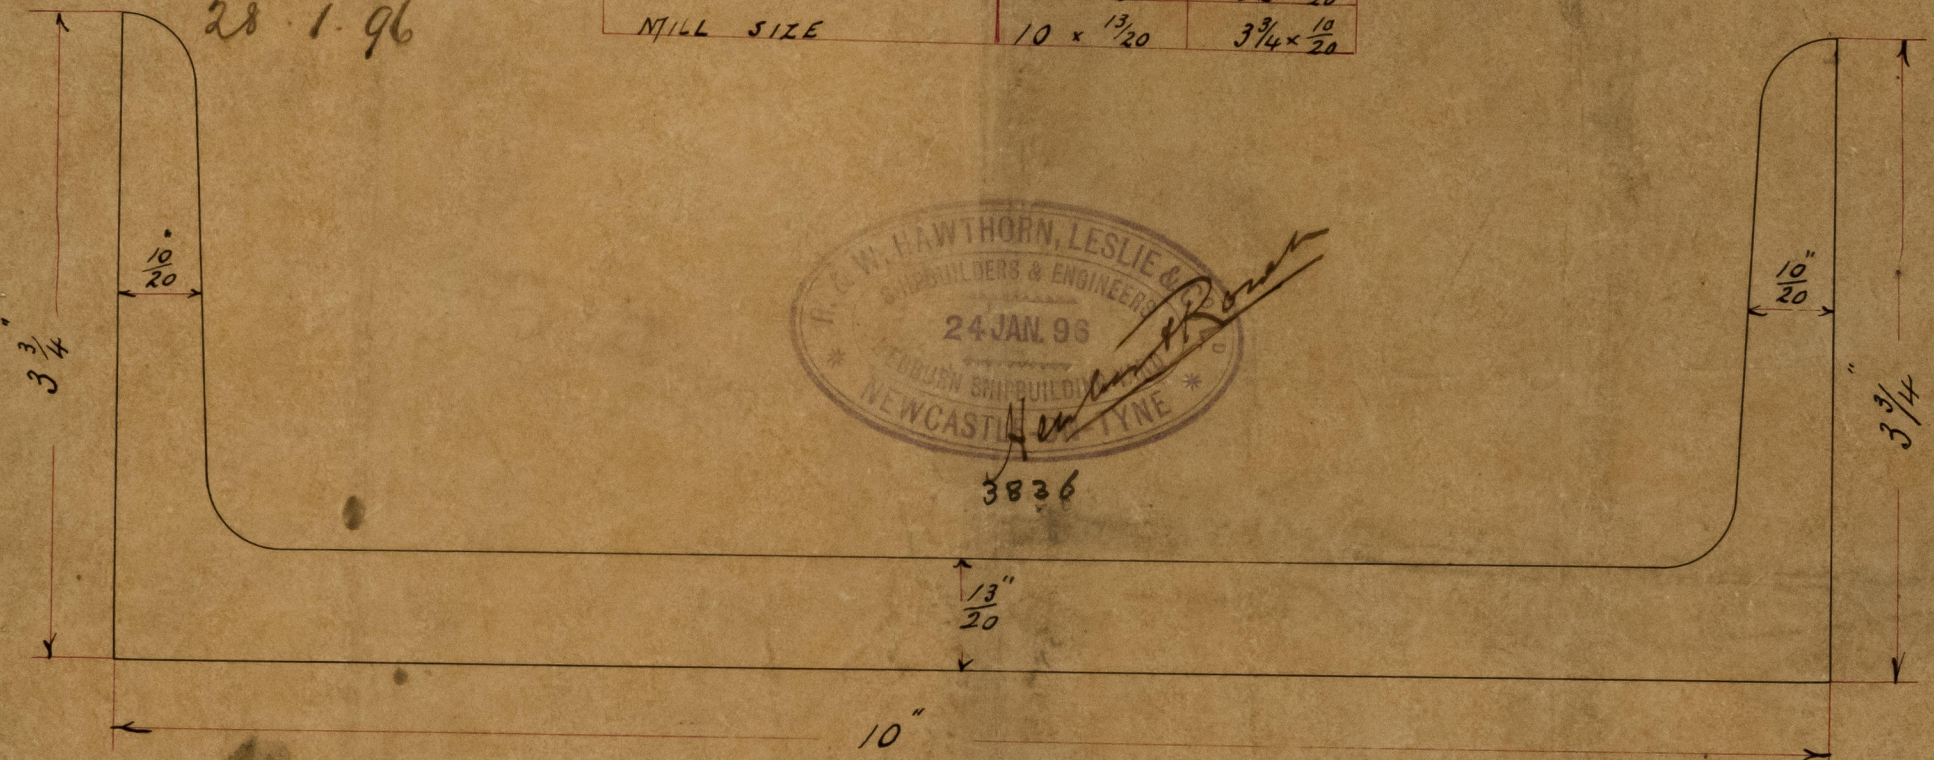 28.1.96
MILL SIZE 10 × 13/20 3 3/4 × 10/20
10"/20
10"/20
3 3/4"
3 3/4"
R. & W. HAWTHORN, LESLIE & CO LD
SHIPBUILDERS & ENGINEERS
24 JAN. 96
HEBBURN SHIPBUILDING YARD
NEWCASTLE-ON-TYNE
3836
13"/20
10"